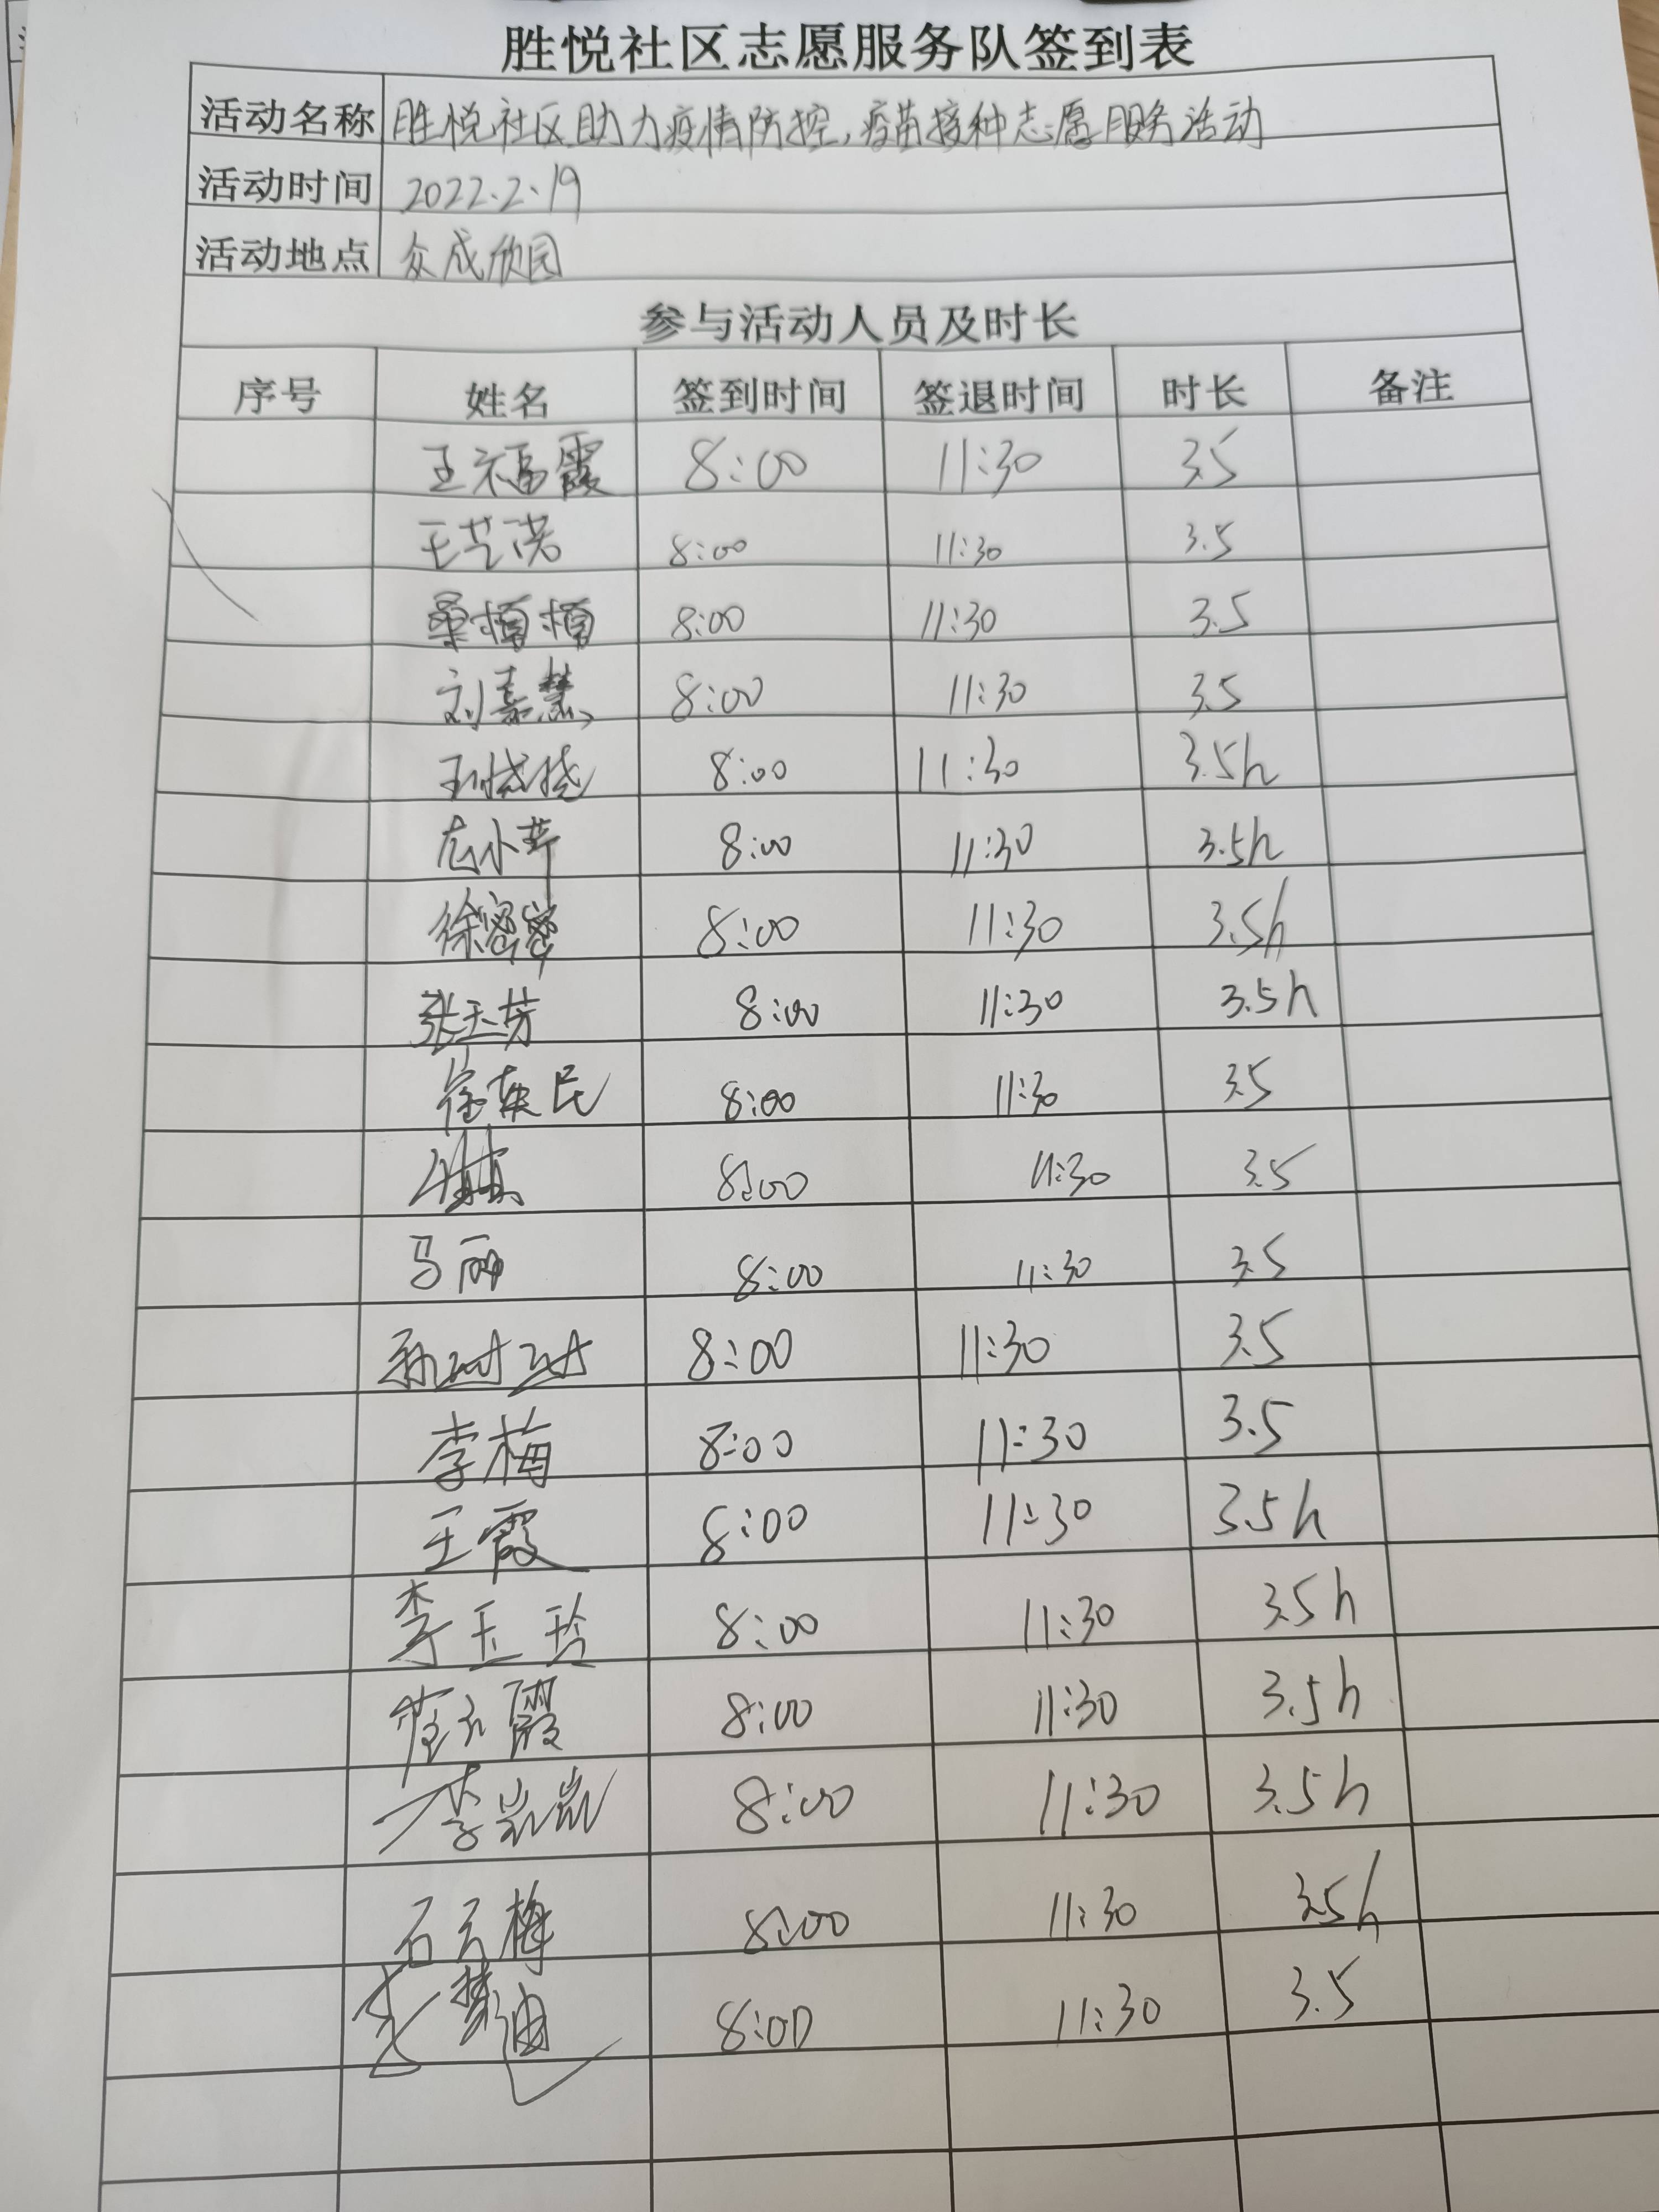 胜悦社区志愿服务队签到表
活动名称 胜悦社区助力疫情防控,疫苗接种志愿服务活动
活动时间 2022.2.19
活动地点 众成欣园
参与活动人员及时长
序号 姓名 签到时间 签退时间 时长 备注
王福霞 8:00 11:30 3.5
王芝诺 8:00 11:30 3.5
桑楠楠 8:00 11:30 3.5
刘嘉慧 8:00 11:30 3.5
王晓晓 8:00 11:30 3.5h
小芹 8:00 11:30 3.5h
徐密密 8:00 11:30 3.5h
张玉芳 8:00 11:30 3.5h
民 8:00 11:30 3.5
8:00 11:30 3.5
马丽 8:00 11:30 3.5
孙 8:00 11:30 3.5
李梅 8:00 11:30 3.5
王霞 8:00 11:30 3.5h
李玉玲 8:00 11:30 3.5h
崔 霞 8:00 11:30 3.5h
李岚岚 8:00 11:30 3.5h
石云梅 8:00 11:30 3.5h
梦迪 8:00 11:30 3.5